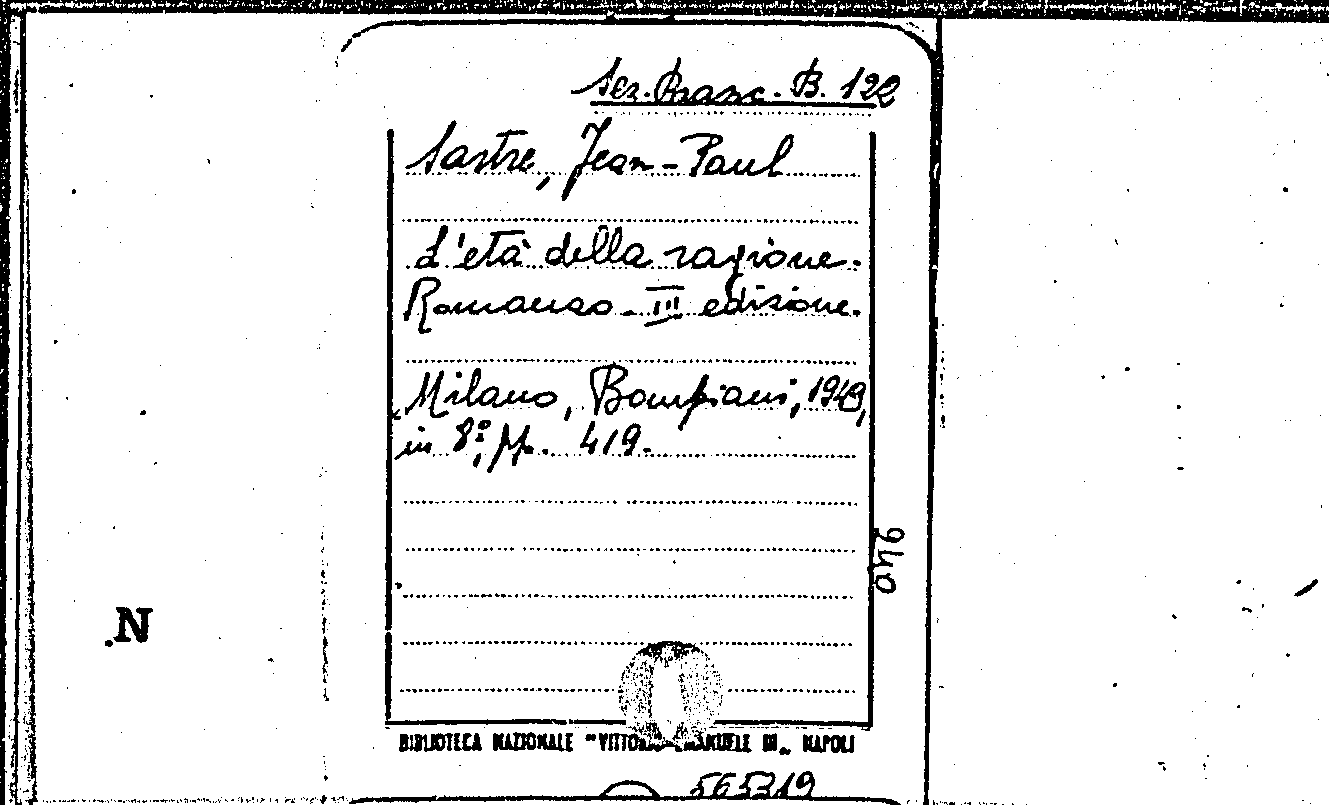 Sez. Branc. B. 122
Sastre, Jean-Paul
L'età della ragione.
Romanzo - III edizione.
Milano, Bompiani, 1949,
in 8º, pp. 419.
940
N
BIBLIOTECA NAZIONALE "VITTORIO EMANUELE III„ NAPOLI
565319